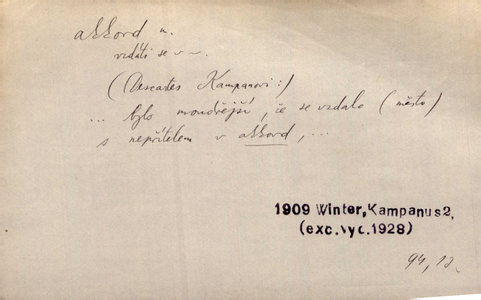 akkord m.
vzdáti se v ~.
(Descartes Kampanovi:)
... bylo moudřejší, že se vzdalo (město)
s nepřítelem v akkord, ...
1909 Winter, Kampanus 2,
(exc.vyd.1928)
94, 12.